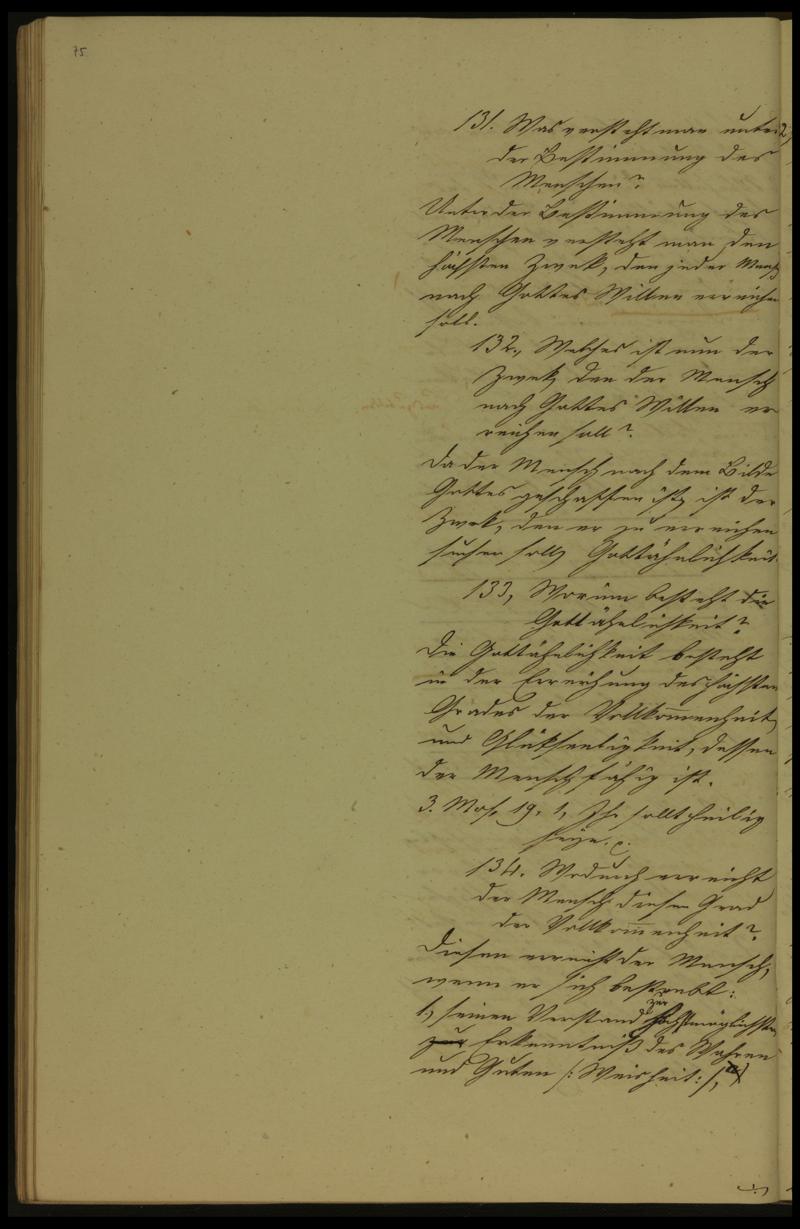 75
131. Was versteht man unter
der Bestimmung des
Menschen?
Unter der Bestimmung des
Menschen versteht man den
höchsten Zwek, den jeder Mensch
nach Gottes Willen erreichen
soll.
132., Welches ist nun der
Zwek, den der Mensch
nach Gottes Willen er
reichen soll?
Da der Mensch nach dem Bilde
Gottes geschaffen ist, ist der
Zwek, den er zu erreichen
suchen soll, Gottähnlichkeit.
133, Worinn besteht die
Gottähnlichkeit?
Die Gottähnlichkeit besteht
in der Erreichung des höchsten
Grades der Vollkom̅enheit,
und Glükseeligkeit, dessen
der Mensch fähig ist.
3. Mos. 19. 1, Ihr sollt heilig
seyn.
134. Wodurch erreicht
der Mensch diesen Grad
der Vollkom̅enheit?
Diesen erreicht der Mensch,
wenn er sich bestrebt:
1., seinen Verstand zur höchstmöglichsten
zur Erkenntniß des Wahren
und Guten /: Weisheit :/,